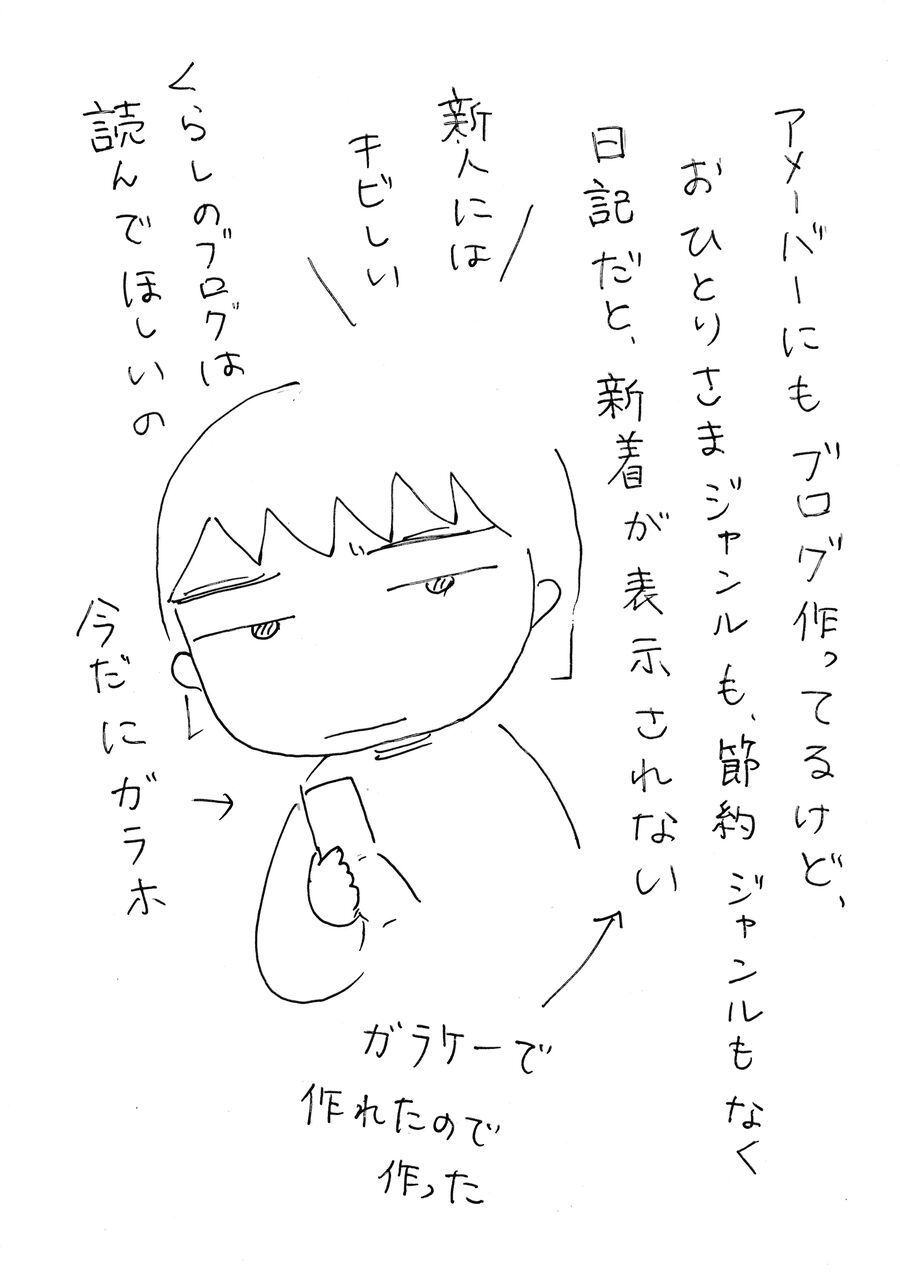 アメーバーにもブログ作ってるけど、
おひとりさまジャンルも、節約ジャンルもなく
日記だと、新着が表示されない
新人には
キビしい
くらしのブログは
読んでほしいの
今だにガラホ
ガラケーで
作れたので
作った